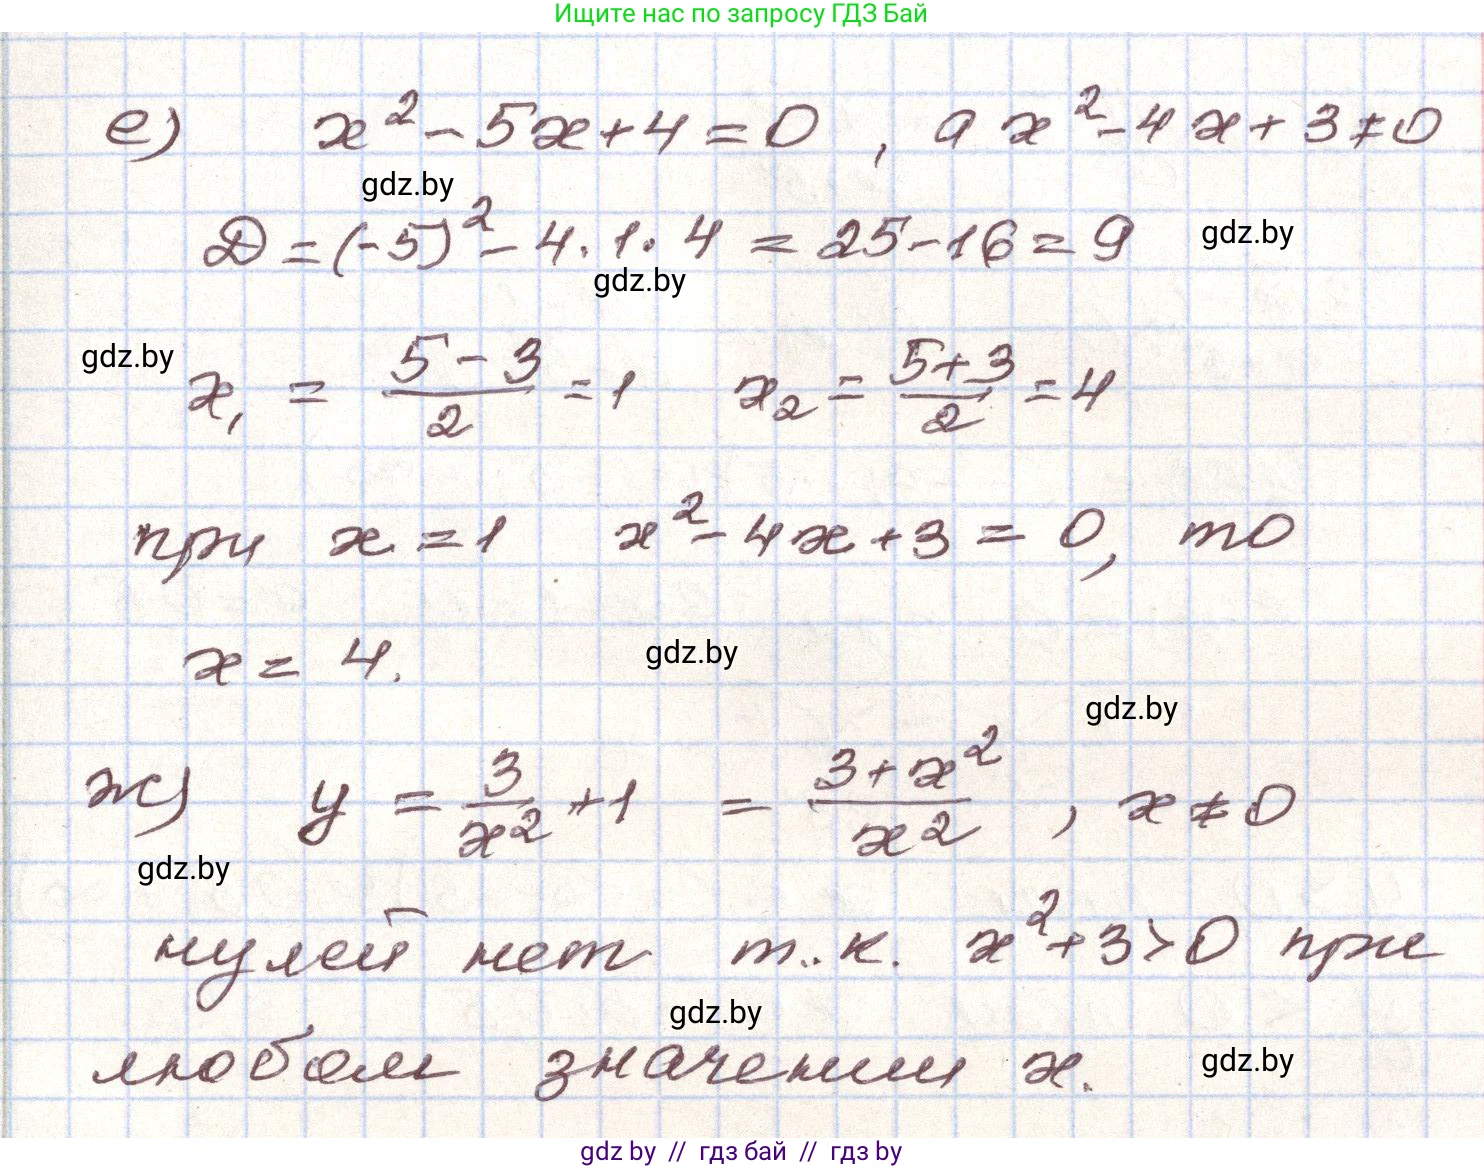 Ищите нас по запросу ГДЗ Бай
е) x² - 5x + 4 = 0 , а x² - 4x + 3 ≠ 0
gdz.by
D = (-5)² - 4 · 1 · 4 = 25 - 16 = 9
gdz.by
gdz.by
gdz.by
x₁ = (5 - 3)/2 = 1 x₂ = (5 + 3)/2 = 4
при x = 1 x² - 4x + 3 = 0, то
x = 4.
gdz.by
gdz.by
ж) y = 3/x² + 1 = (3 + x²)/x² , x ≠ 0
gdz.by
нулей нет т.к. x² + 3 > 0 при
gdz.by
любом значении x.
gdz.by
gdz by // гдз бай // гдз by